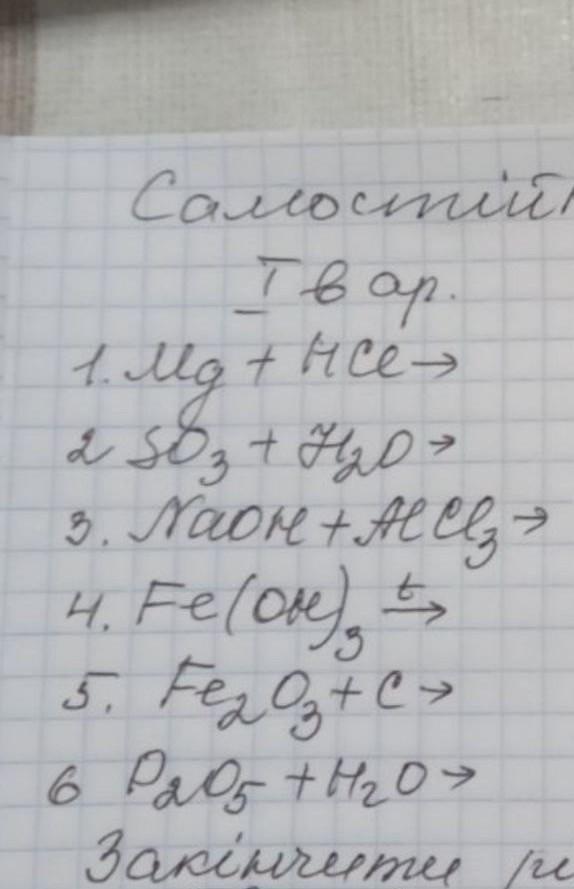 Самостій
I вар.
1. Mg + HCl →
2 SO₃ + H₂O →
3. NaOH + AlCl₃ →
4. Fe(OH)₃ t→
5. Fe₂O₃ + C →
6 P₂O₅ + H₂O →
Закінчити